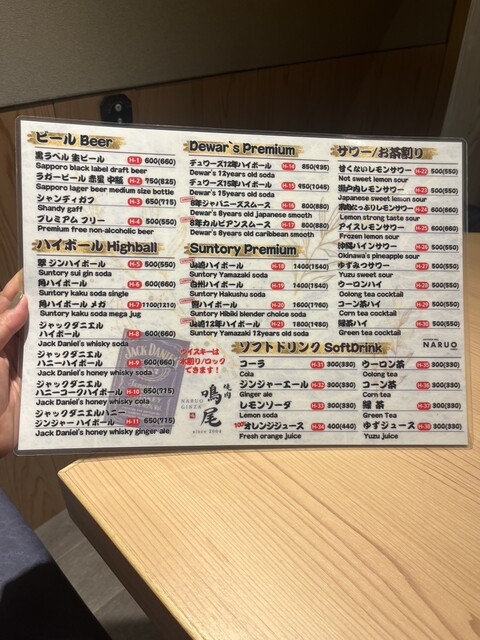 ビール Beer
黒ラベル 生ビール H-1 600(660)
Sapporo black label draft beer
ラガービール 赤星 中瓶 H-2 750(825)
Sapporo lager beer medium size bottle
シャンディガフ H-3 650(715)
Shandy gaff
プレミアム フリー H-4 500(550)
Premium free non-alcoholic beer
ハイボール Highball
翠 ジンハイボール H-5 500(550)
Suntory sui gin soda
角ハイボール H-6 600(660)
Suntory kaku soda single
角ハイボール メガ H-7 1100(1210)
Suntory kaku soda mega jug
ジャックダニエル
ハイボール H-8 600(660)
Jack Daniel's whisky soda
ジャックダニエル
ハニーハイボール H-9 600(660)
Jack Daniel's honey whisky soda
ジャックダニエル
ハニーコークハイボール H-10 650(715)
Jack Daniel's honey whisky cola
ジャックダニエルハニー
ジンジャーハイボール H-11 650(715)
Jack Daniel's honey whisky ginger ale
Dewar's Premium
デュワーズ12年ハイボール H-14 850(935)
Dewar's 12years old soda
デュワーズ15年ハイボール H-15 950(1045)
Dewar's 15years old soda
8年ジャパニーズスムース H-16 800(880)
Dewar's 8years old japanese smooth
8年カルビアンスムース H-17 800(880)
Dewar's 8years old caribbean smooth
Suntory Premium
山崎ハイボール H-18 1400(1540)
Suntory Yamazaki soda
白州ハイボール H-19 1400(1540)
Suntory Hakushu soda
響ハイボール H-20 1600(1760)
Suntory Hibiki blender choice soda
山崎12年ハイボール H-21 1800(1980)
Suntory Yamazaki 12years old soda
サワー/お茶割り
甘くないレモンサワー H-22 500(550)
Not sweet lemon sour
瀬戸内レモンサワー H-23 500(550)
Japanese sweet lemon sour
果肉たっぷりレモンサワー H-24 600(660)
Lemon strong taste sour
アイスレモンサワー H-25 600(660)
Frozen lemon sour
沖縄パインサワー H-26 500(550)
Okinawa's pineapple sour
ゆずみつサワー H-27 500(550)
Yuzu sweet sour
ウーロンハイ H-28 500(550)
Oolong tea cocktail
コーン茶ハイ H-29 500(550)
Corn tea cocktail
緑茶ハイ H-30 500(550)
Green tea cocktail
NARUO
ソフトドリンク SoftDrink
コーラ H-31 300(330)
Cola
ジンジャーエール H-32 300(330)
Ginger ale
レモンソーダ H-33 300(330)
Lemon soda
100% オレンジジュース H-34 400(440)
Fresh orange juice
ウーロン茶 H-35 300(330)
Oolong tea
コーン茶 H-36 300(330)
Corn tea
緑 茶 H-37 300(330)
Green Tea
ゆずジュース H-38 300(330)
Yuzu juice
ウイスキーは
水割り/ロック
できます!
JACK DANIEL
焼肉
鳴尾
NARUO
GINZA
since 2004